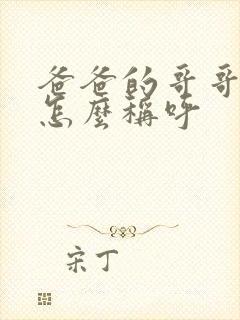 爸爸的哥哥
怎麼稱呼
宋丁